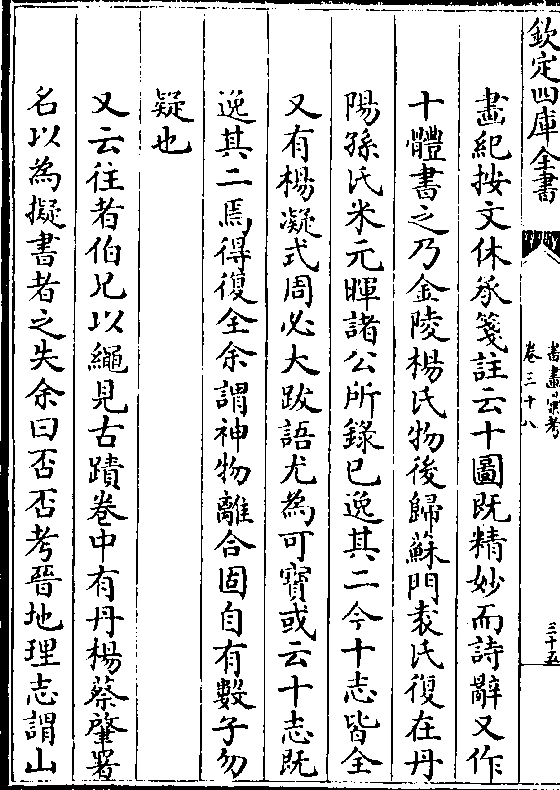 欽定四庫全書
書畫彙考
卷三十八
三十五
畫紀按文休承箋註云十圖既精妙而詩辭又作
十體書之乃金陵楊氏物後歸蘇門袁氏復在丹
陽孫氏米元暉諸公所錄已逸其二今十志皆全
又有楊凝式周必大跋語尤為可寶或云十志既
逸其二焉得復全余謂神物離合固自有數子勿
疑也
又云往者伯兄以繩見古蹟卷中有丹楊蔡肇署
名以為擬書者之失余曰否否考晉地理志謂山